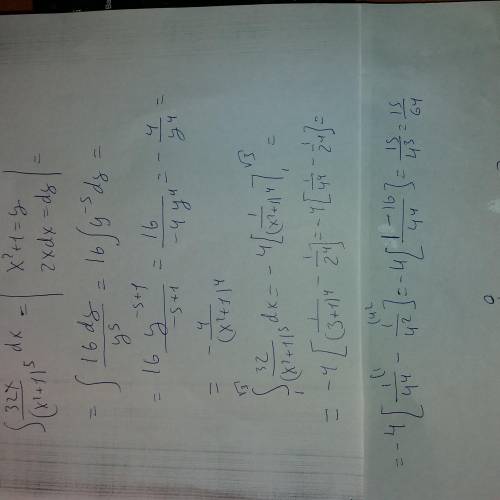 ∫ 32x/(x²+1)⁵ dx = | x²+1=y 2xdx=dy | =
= ∫ 16dy/y⁵ = 16∫y⁻⁵dy =
= 16 y⁻⁵⁺¹/-5+1 = 16/-4y⁴ = -4/y⁴ =
= -4/(x²+1)⁴
√3 ∫ 1 32/(x²+1)⁵ dx = -4[1/(x²+1)⁴]₁^√3 =
= -4[1/(3+1)⁴ - 1/2⁴] = -4[1/4⁴ - 1/2⁴] =
= -4[1/4⁴ - 1/4²] = -4[1-16/4⁴] = 15/4³ = 15/64